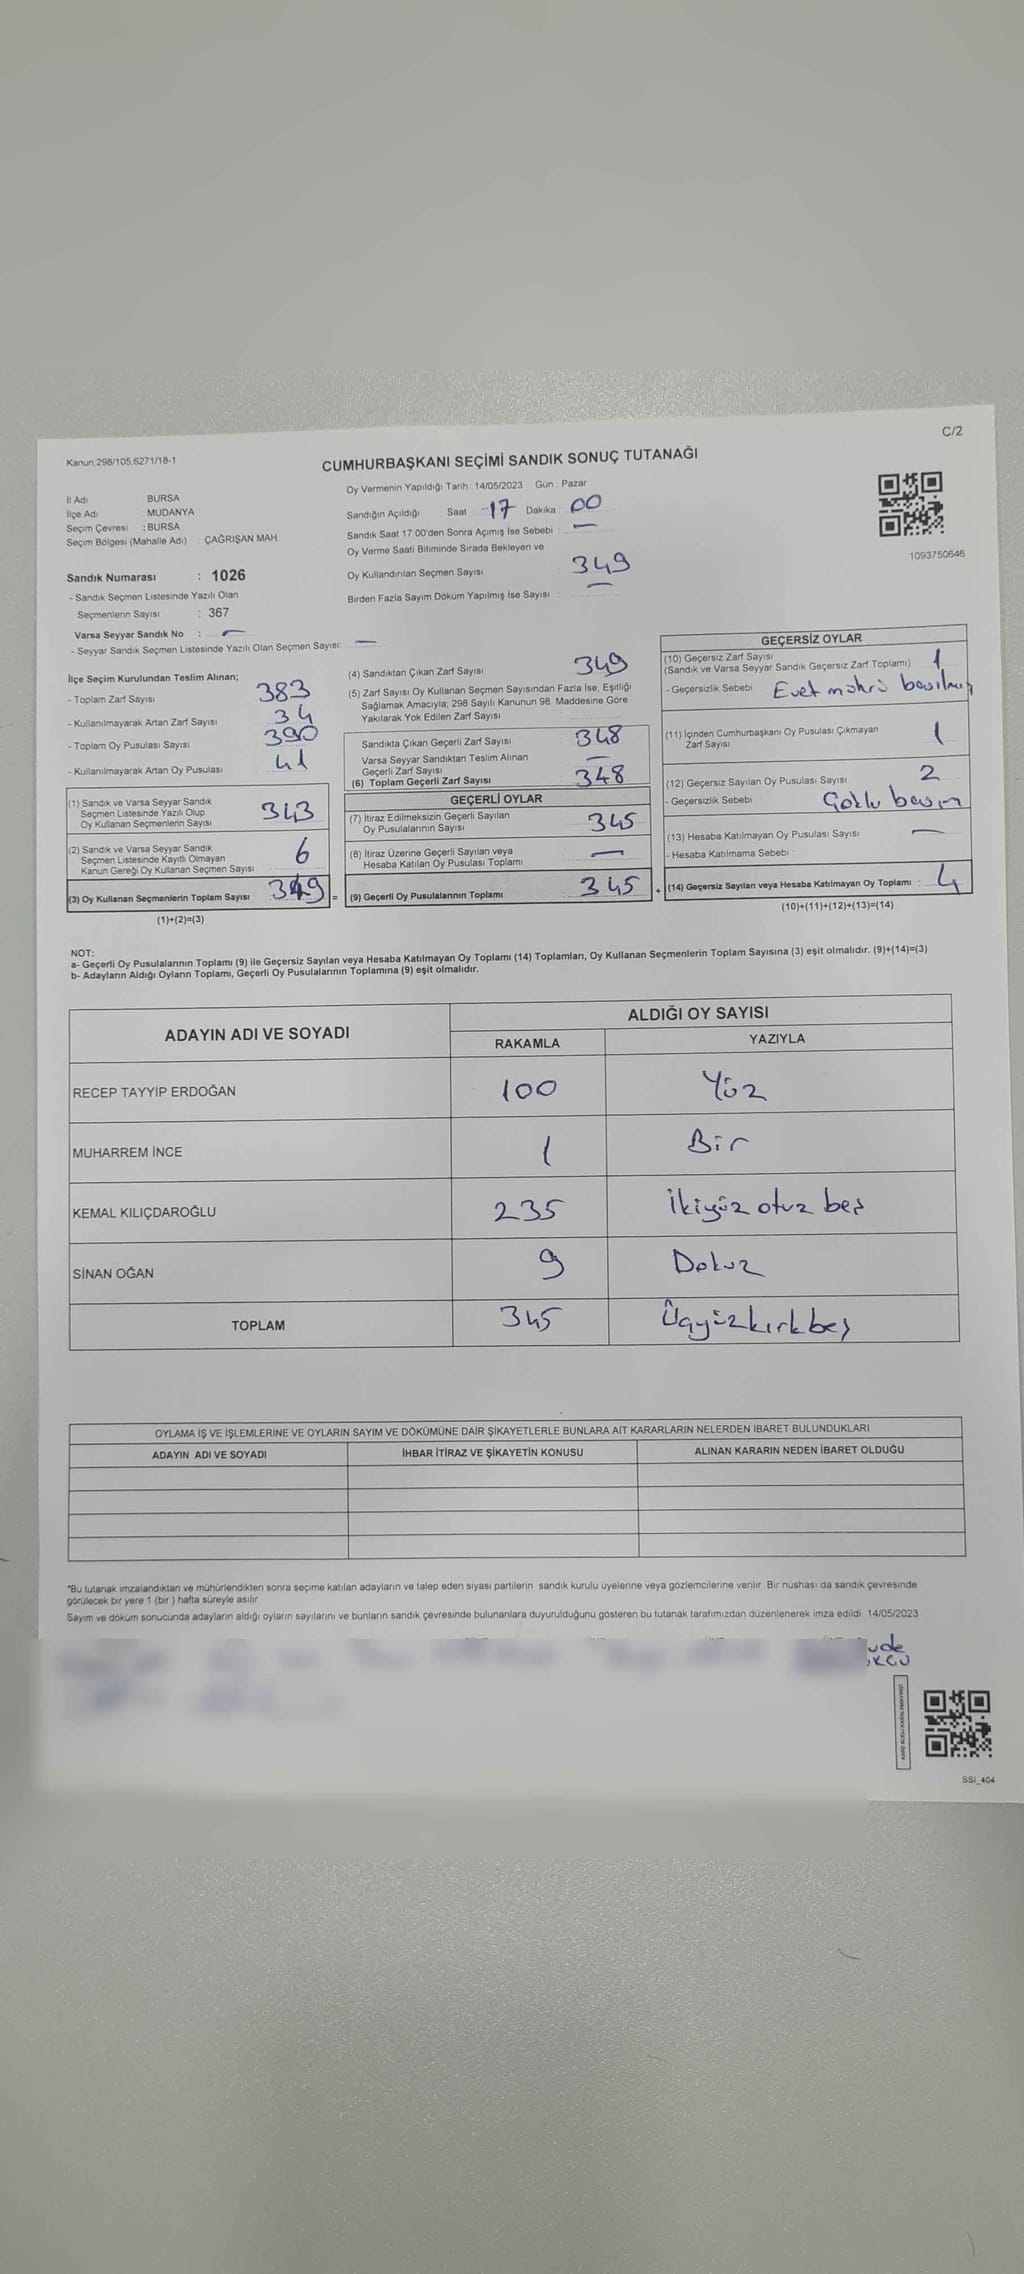 C/2
Kanun:298/105;6271/18-1
CUMHURBAŞKANI SEÇİMİ SANDIK SONUÇ TUTANAĞI
İl Adı : BURSA
İlçe Adı : MUDANYA
Seçim Çevresi : BURSA
Seçim Bölgesi (Mahalle Adı) : ÇAĞRIŞAN MAH.
Sandık Numarası : 1026
- Sandık Seçmen Listesinde Yazılı Olan
Seçmenlerin Sayısı : 367
Varsa Seyyar Sandık No : —
- Seyyar Sandık Seçmen Listesinde Yazılı Olan Seçmen Sayısı: —
Oy Vermenin Yapıldığı Tarih : 14/05/2023 Gün : Pazar
Sandığın Açıldığı Saat 17 Dakika 00
Sandık Saat 17:00'den Sonra Açımış İse Sebebi : —
Oy Verme Saati Bitiminde Sırada Bekleyen ve
Oy Kullandırılan Seçmen Sayısı 349
Birden Fazla Sayım Döküm Yapılmış İse Sayısı : —
1093750646
İlçe Seçim Kurulundan Teslim Alınan;
- Toplam Zarf Sayısı 383
- Kullanılmayarak Artan Zarf Sayısı 34
- Toplam Oy Pusulası Sayısı 390
- Kullanılmayarak Artan Oy Pusulası 41
(1) Sandık ve Varsa Seyyar Sandık
Seçmen Listesinde Yazılı Olup
Oy Kullanan Seçmenlerin Sayısı 343
(2) Sandık ve Varsa Seyyar Sandık
Seçmen Listesinde Kayıtlı Olmayan
Kanun Gereği Oy Kullanan Seçmen Sayısı 6
(3) Oy Kullanan Seçmenlerin Toplam Sayısı 349 =
(1)+(2)=(3)
(4) Sandıktan Çıkan Zarf Sayısı 349
(5) Zarf Sayısı Oy Kullanan Seçmen Sayısından Fazla İse, Eşitliği
Sağlamak Amacıyla; 298 Sayılı Kanunun 98. Maddesine Göre
Yakılarak Yok Edilen Zarf Sayısı
Sandıkta Çıkan Geçerli Zarf Sayısı 348
Varsa Seyyar Sandıktan Teslim Alınan
Geçerli Zarf Sayısı —
(6) Toplam Geçerli Zarf Sayısı 348
GEÇERLİ OYLAR
(7) İtiraz Edilmeksizin Geçerli Sayılan
Oy Pusulalarının Sayısı 345
(8) İtiraz Üzerine Geçerli Sayılan veya
Hesaba Katılan Oy Pusulası Toplamı —
(9) Geçerli Oy Pusulalarının Toplamı : 345 +
GEÇERSİZ OYLAR
(10) Geçersiz Zarf Sayısı
(Sandık ve Varsa Seyyar Sandık Geçersiz Zarf Toplamı) 1
- Geçersizlik Sebebi Evet mührü basılmış
(11) İçinden Cumhurbaşkanı Oy Pusulası Çıkmayan
Zarf Sayısı 1
(12) Geçersiz Sayılan Oy Pusulası Sayısı 2
- Geçersizlik Sebebi Çoklu basım
(13) Hesaba Katılmayan Oy Pusulası Sayısı —
- Hesaba Katılmama Sebebi :
(14) Geçersiz Sayılan veya Hesaba Katılmayan Oy Toplamı : 4
(10)+(11)+(12)+(13)=(14)
NOT:
a- Geçerli Oy Pusulalarının Toplamı (9) ile Geçersiz Sayılan veya Hesaba Katılmayan Oy Toplamı (14) Toplamları, Oy Kullanan Seçmenlerin Toplam Sayısına (3) eşit olmalıdır. (9)+(14)=(3)
b- Adayların Aldığı Oyların Toplamı, Geçerli Oy Pusulalarının Toplamına (9) eşit olmalıdır.
ADAYIN ADI VE SOYADI
ALDIĞI OY SAYISI
RAKAMLA YAZIYLA
RECEP TAYYİP ERDOĞAN 100 Yüz
MUHARREM İNCE 1 Bir
KEMAL KILIÇDAROĞLU 235 İkiyüz otuz beş
SİNAN OĞAN 9 Dokuz
TOPLAM 345 Üçyüzkırkbeş
OYLAMA İŞ VE İŞLEMLERİNE VE OYLARIN SAYIM VE DÖKÜMÜNE DAİR ŞİKAYETLERLE BUNLARA AİT KARARLARIN NELERDEN İBARET BULUNDUKLARI
ADAYIN ADI VE SOYADI İHBAR İTİRAZ VE ŞİKAYETİN KONUSU ALINAN KARARIN NEDEN İBARET OLDUĞU
*Bu tutanak imzalandıktan ve mühürlendikten sonra seçime katılan adayların ve talep eden siyasi partilerin sandık kurulu üyelerine veya gözlemcilerine verilir. Bir nüshası da sandık çevresinde
görülecek bir yere 1 (bir ) hafta süreyle asılır.
Sayım ve döküm sonucunda adayların aldığı oyların sayılarını ve bunların sandık çevresinde bulunanlara duyurulduğunu gösteren bu tutanak tarafımızdan düzenlenerek imza edildi. 14/05/2023
SSİ_404